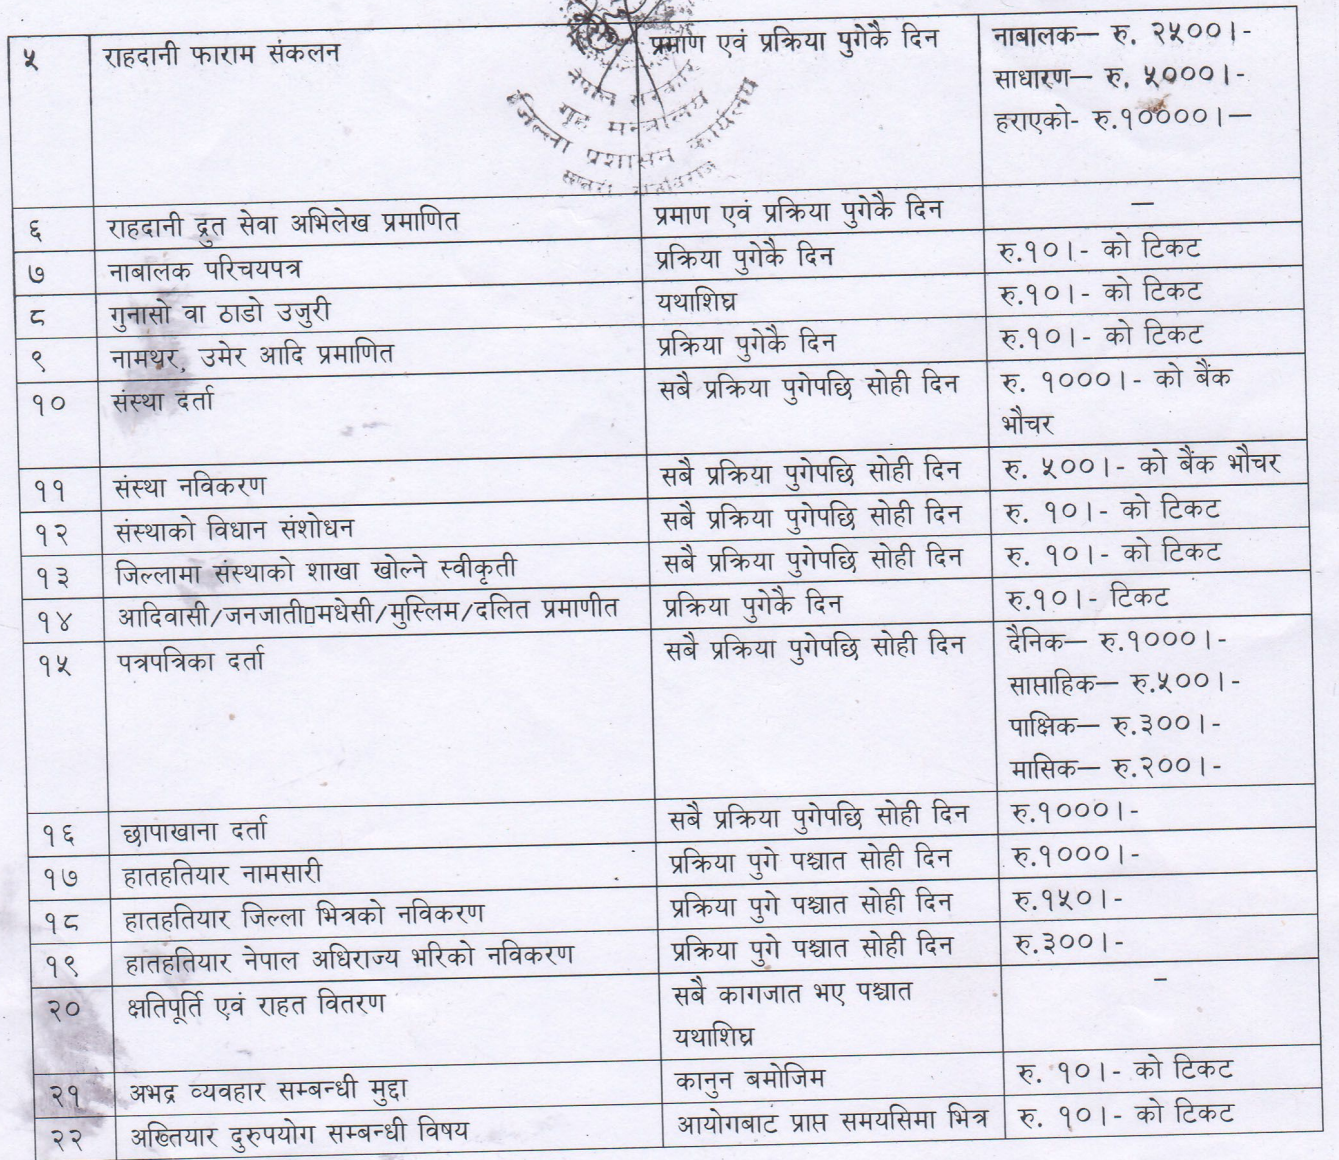 ५ राहदानी फाराम संकलन प्रमाण एवं प्रक्रिया पुगेकै दिन नाबालक— रु. २५००।-
साधारण— रु. ५०००।-
हराएको- रु.१००००।—
नेपाल सरकार
गृह मन्त्रालय
जिल्ला प्रशासन कार्यालय
६ राहदानी द्रुत सेवा अभिलेख प्रमाणित प्रमाण एवं प्रक्रिया पुगेकै दिन —
७ नाबालक परिचयपत्र प्रक्रिया पुगेकै दिन रु.१०।- को टिकट
८ गुनासो वा ठाडो उजुरी यथाशिघ्र रु.१०।- को टिकट
९ नामथर, उमेर आदि प्रमाणित प्रक्रिया पुगेकै दिन रु.१०।- को टिकट
१० संस्था दर्ता सबै प्रक्रिया पुगेपछि सोही दिन रु. १०००।- को बैंक
भौचर
११ संस्था नविकरण सबै प्रक्रिया पुगेपछि सोही दिन रु. ५००।- को बैंक भौचर
१२ संस्थाको विधान संशोधन सबै प्रक्रिया पुगेपछि सोही दिन रु. १०।- को टिकट
१३ जिल्लामा संस्थाको शाखा खोल्ने स्वीकृती सबै प्रक्रिया पुगेपछि सोही दिन रु. १०।- को टिकट
१४ आदिवासी/जनजाती▯मधेसी/मुस्लिम/दलित प्रमाणीत प्रक्रिया पुगेकै दिन रु.१०।- टिकट
१५ पत्रपत्रिका दर्ता सबै प्रक्रिया पुगेपछि सोही दिन दैनिक— रु.१०००।-
साप्ताहिक— रु.५००।-
पाक्षिक— रु.३००।-
मासिक— रु.२००।-
१६ छापाखाना दर्ता सबै प्रक्रिया पुगेपछि सोही दिन रु.१०००।-
१७ हातहतियार नामसारी प्रक्रिया पुगे पश्चात सोही दिन रु.१०००।-
१८ हातहतियार जिल्ला भित्रको नविकरण प्रक्रिया पुगे पश्चात सोही दिन रु.१५०।-
१९ हातहतियार नेपाल अधिराज्य भरिको नविकरण प्रक्रिया पुगे पश्चात सोही दिन रु.३००।-
२० क्षतिपूर्ति एवं राहत वितरण सबै कागजात भए पश्चात –
यथाशिघ्र
२१ अभद्र व्यवहार सम्बन्धी मुद्दा कानुन बमोजिम रु. १०।- को टिकट
२२ अख्तियार दुरुपयोग सम्बन्धी विषय आयोगबाट प्राप्त समयसिमा भित्र रु. १०।- को टिकट